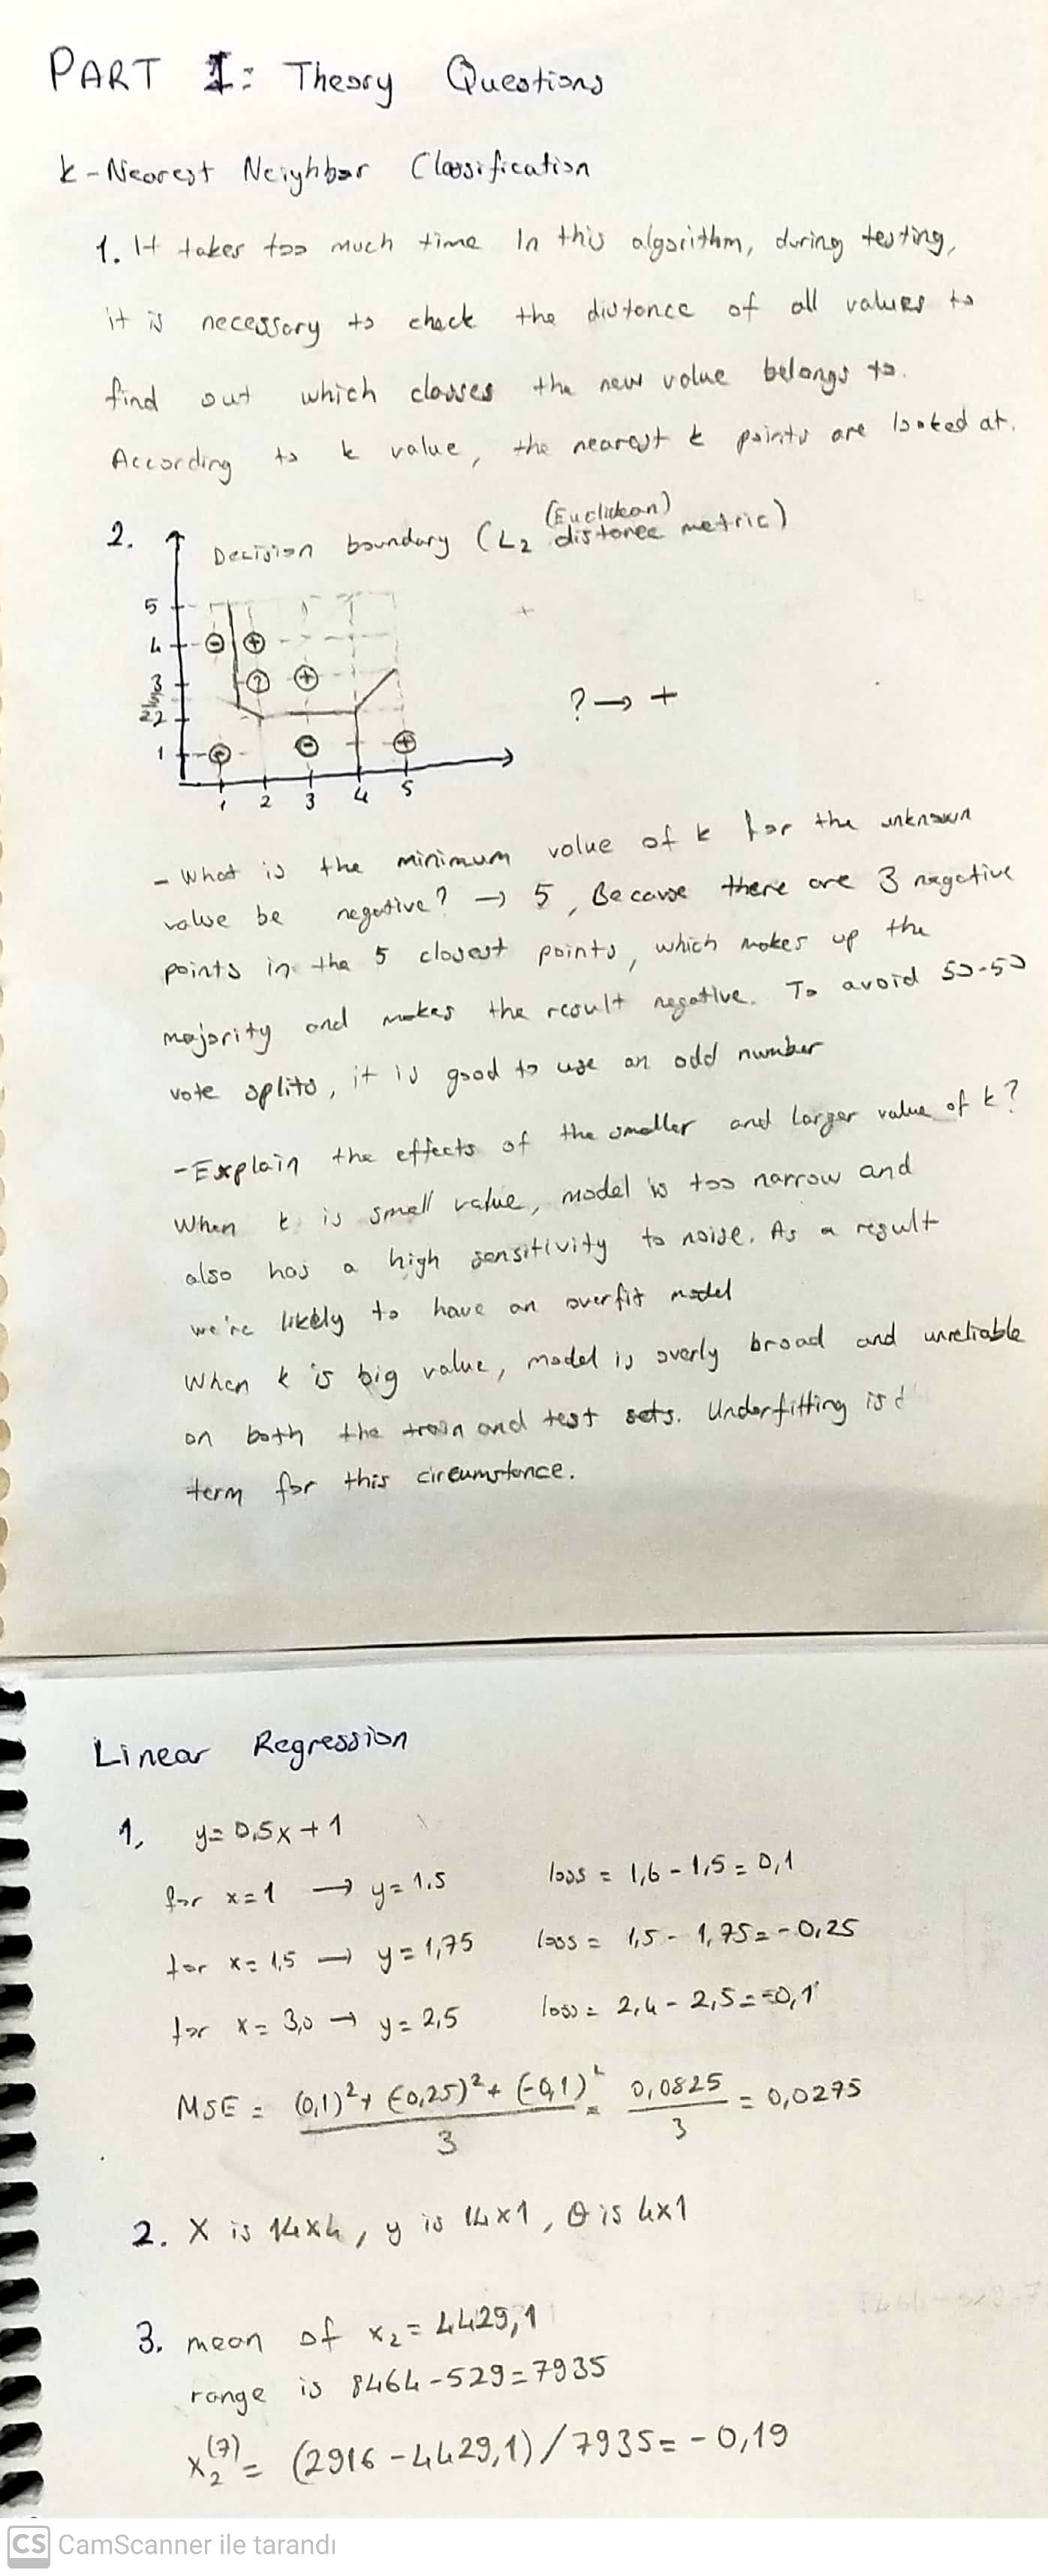 PART I: Theory Questions
k-Nearest Neighbor Classification
1. It takes too much time In this algorithm, during testing,
it is necessary to check the distance of all values to
find out which classes the new value belongs to.
According to k value, the nearest k points are looked at.
2. Decision boundary (L2 (Euclidean) distance metric)
5
4 - +
3 ? +
2
1 - +
1 2 3 4 5
? → +
- What is the minimum value of k for the unknown
value be negative? → 5, Because there are 3 negative
points in the 5 closest points, which makes up the
majority and makes the result negative. To avoid 50-50
vote splits, it is good to use an odd number
- Explain the effects of the smaller and larger value of k?
When k is small value, model is too narrow and
also has a high sensitivity to noise. As a result
we're likely to have an overfit model
When k is big value, model is overly broad and unreliable
on both the train and test sets. Underfitting is
term for this circumstance.
Linear Regression
1. y=0,5x+1
for x=1 → y=1.5 loss = 1,6-1,5=0,1
for x=1,5 → y=1,75 loss = 1,5-1,75=-0,25
for x=3,0 → y=2,5 loss = 2,4-2,5=-0,1
MSE = (0,1)²+(-0,25)²+(-0,1)² / 3 = 0,0825 / 3 = 0,0275
2. X is 14x4, y is 14x1, θ is 4x1
3. mean of x₂=4429,1
range is 8464-529=7935
x₂⁽⁷⁾ = (2916-4429,1)/7935=-0,19
CS CamScanner ile tarandı